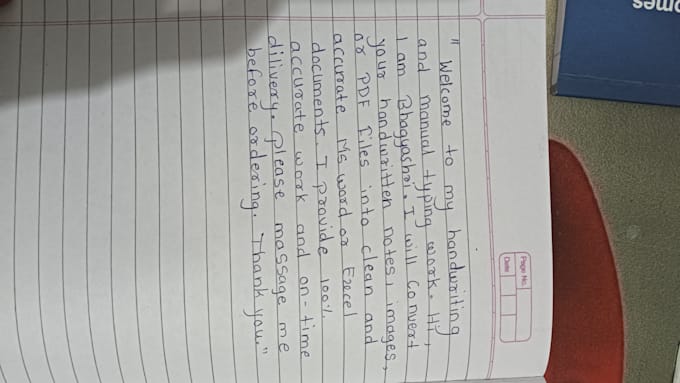 omes
Page No.
Date
" Welcome to my handwriting
and manual typing work. Hi,
I am Bhagyashri. I will convert
your handwritten notes, images,
or PDF Files into clean and
accurate Ms word or Excel
documents. I provide 100%
accurate work and on-time
dilivery. please massage me
before ordering. Thank you."